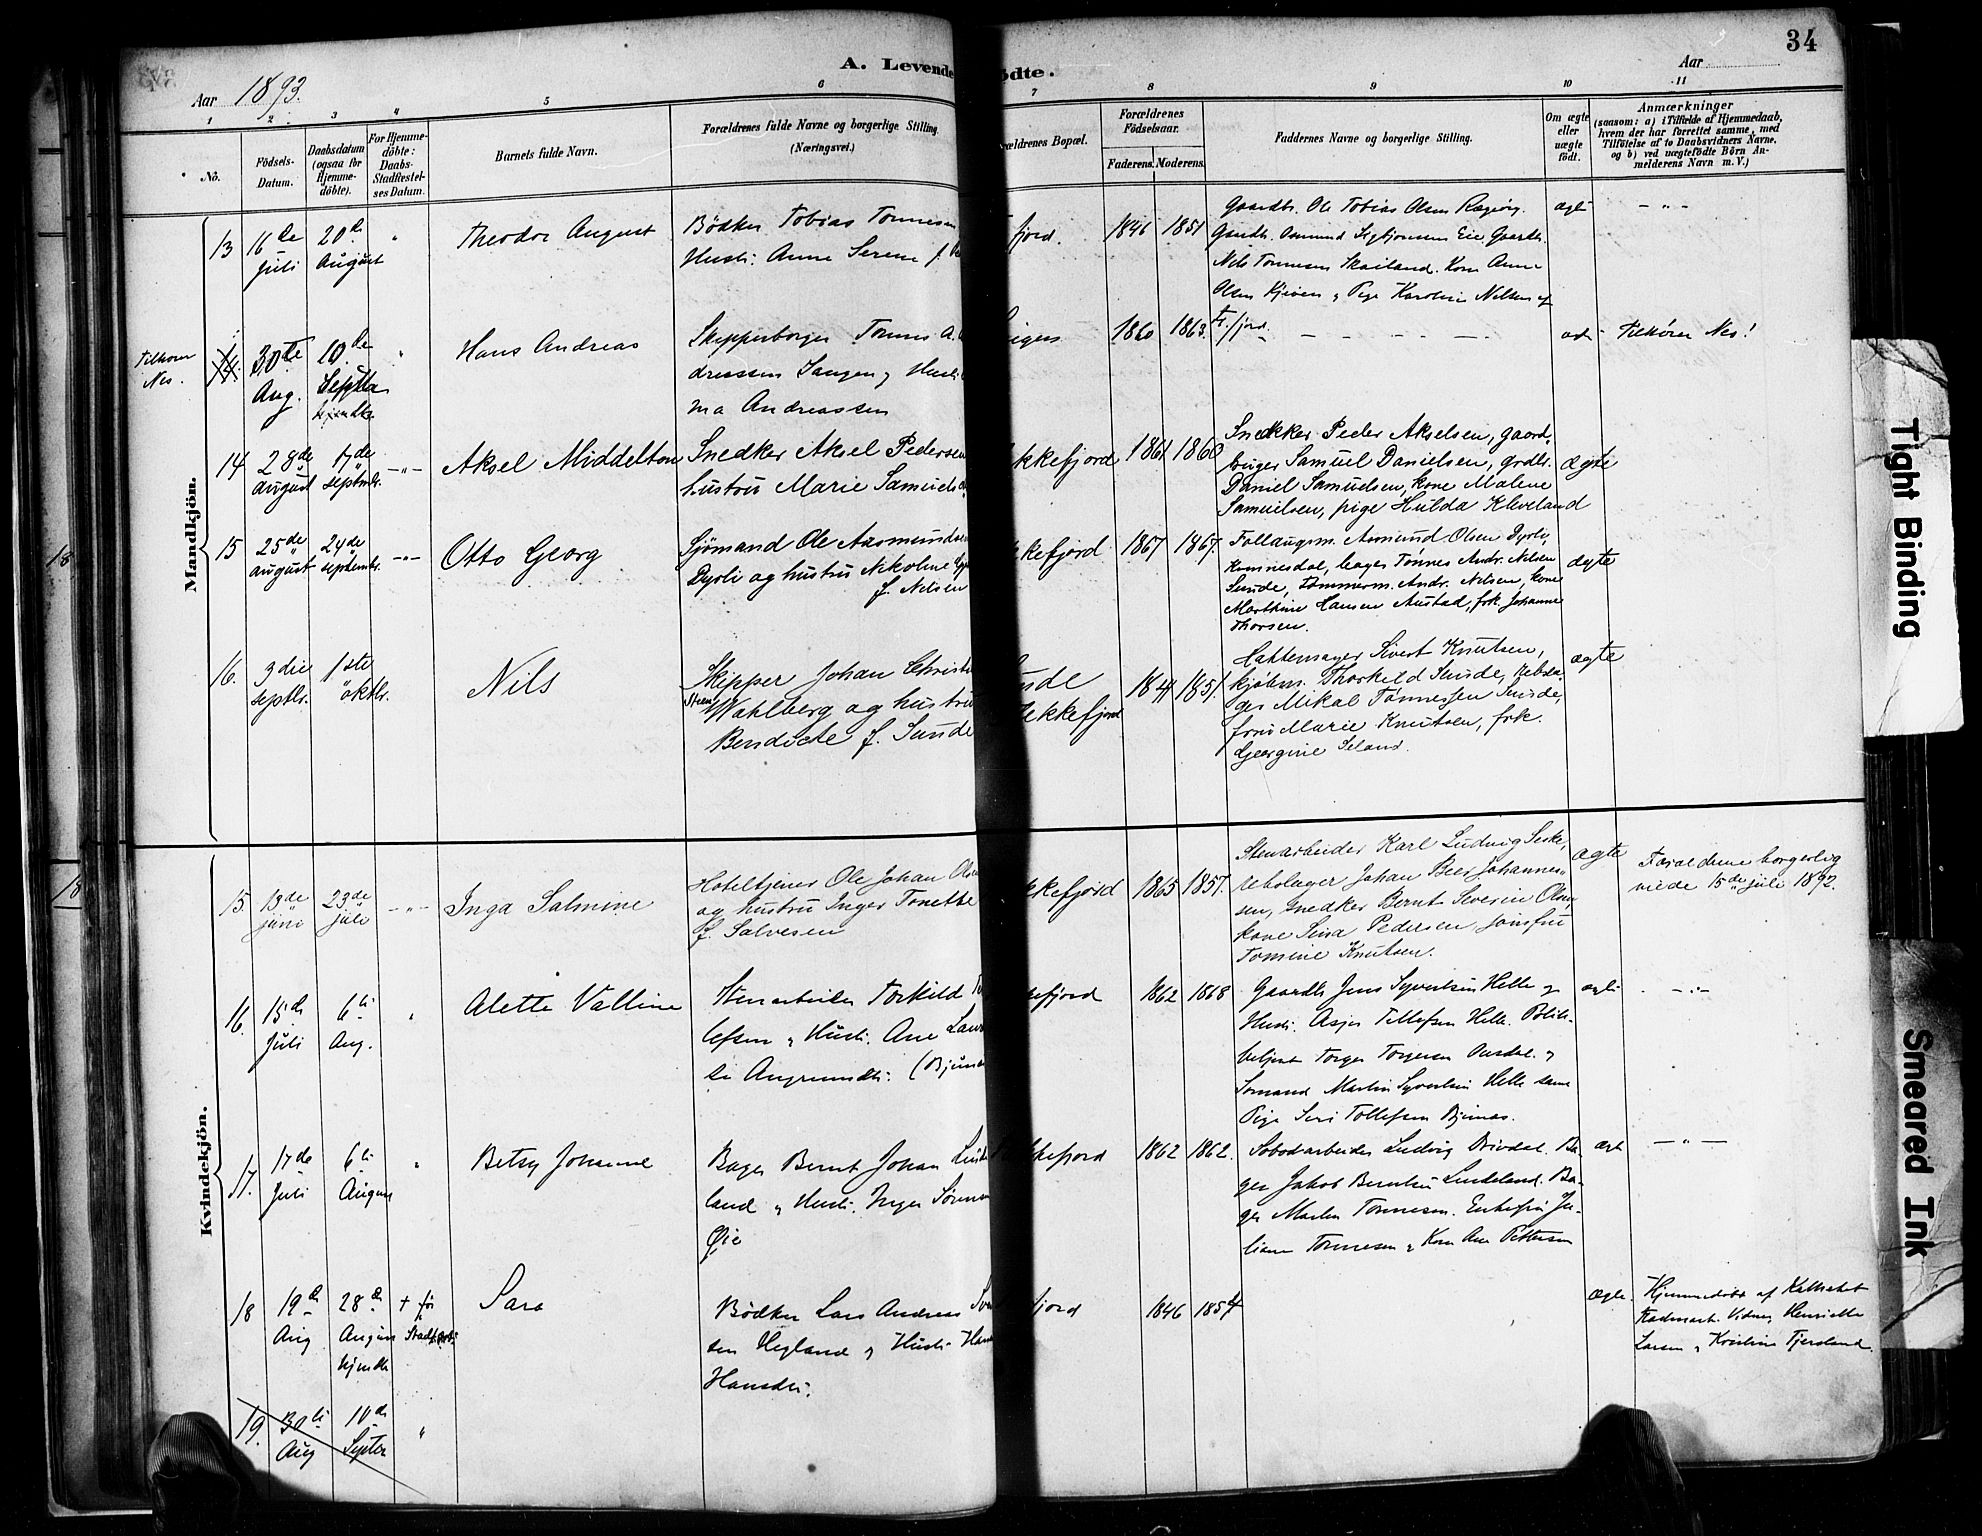 34
A. Levende
ødte.
Aar 1893.
Aar
1
2
3
4
5
6
7
8
9
10
11
No.
Fødsels-
Datum.
Daabsdatum
(ogsaa for
Hjemme-
døbte).
For Hjemme-
døbte:
Daabs-
Stadfæstel-
ses Datum.
Barnets fulde Navn.
Forældrenes fulde Navne og borgerlige Stilling
(Næringsvei.)
ældrenes Bopæl.
Forældrenes
Fødselsaar.
Faderens.
Moderens.
Faddernes Navne og borgerlige Stilling.
Om ægte
eller
uægte
født.
Anmærkninger
(saasom: a) i Tilfælde af Hjemmedaab,
hvem der har forrettet samme, med
Tilføielse af to Daabsvidners Navne,
og b) ved uægtefødte Børn An-
melderens Navn m. V.)
Mandkjön.
13
16de
Juli
20de
August
Theodor August
Bödker Tobias Tonnesen
Hustr. Anne Serene f.
fjord.
1846
1851
Gaardbr. Ole Tobias Olsen
Gaardbr. Osmund Sigbjornsen Eie, Gaardbr.
Nils Tonnesen Skailand. Kone Anne
Olsen & Pige Karoline Nilsen af
Fl.fjord.
Tilhører
Nes.
14.
30te
Aug.
10de
Septbr
hjemdbt
Hans Andreas
Skipperborger Tonnes A.
dreassen & Hustr.
na Andreassen
1860
1863.
Tilhører Nes!
14
28de
august
17de
septmbr.
Aksel Middelton
Snedker Aksel Pedersen
hustru Marie Samuels
kkefjord
1861
1860
Snedkker Peder Akselsen, gaard-
bruger Samuel Danielsen, grdbr.
Daniel Samuelsen, kone Malene
Samuelsen, pige Hulda Kleveland
ægte
15
25de
august
24de
septembr.
Otto Georg
Sjømand Ole Aasmundsen
Dyrli og hustru Nikoline
f. Nilsen
kkefjord
1867
1867.
Follaugsm. Asmund Olsen Dyrli,
Kvinesdal, bager Tønnes Andr. Nilsen
Sunde, tømmerm. Andr. Nilsen, kone
Marthine Hansen Austad, frk. Johanne
Thorsen.
ægte
16.
3die
septbr.
1ste
oktbr.
Nils
Skipper Johan Christi
Wahlberg og hustru
Bendicte f. Sunde
unde
ekkefjord
1841
1851.
Hattemager Sivert Knutsen,
kjøbm. Thorkild Sunde, Uebola-
ger Mikal Tønnessen Sunde,
fru Marie Knutsen, frk.
Georgine Seland.
ægte
Kvindekjön.
15.
13de
juni
23de
juli
Inga Salmine
Hoteltjener Ole Johan Olsen
og hustru Inger Tonette
f. Salvesen
kkefjord
1865
1857.
Stenarbeider Karl Ludvig Seske,
Johan Beer Johannes-
sen, snedker Bernt Severin Olsen,
kone Sina Pedersen, jomfru
Tomine Knutsen.
ægte
Forældrene borgerlig
viede 15de juli 1892.
16.
15de
Juli
6te
Aug.
Alette Valline
Stenarbeider Torkild
lefsen & Hustr. Ane
kefjord
1862
1868
Gaardbr Jens Syvertsen Helle &
Hustr. Asjer Tellefsen Helle. Politi-
betjent Torger Torgersen &
Sømand Martin Syvertsen Helle samt
Pige Seri Tollefsen
17.
17de
Juli
6te
August
Betsy Johanne
Bager Bernt Johan Linde
land & Hustr. Inger Sørense
Øie
kkefjord
1862
1862.
arbeider Ludvig Drivdal. Ba-
ger Jakob Berntsen Lindeland. Ba-
ger Martin Tonnesen. Enkefru Ju-
liane Tonnesen & Kone Ane Pettersen
18
19de
Aug
28de
August
hjmdbt
+ før
Stadf.
Sara
Bødker Lars Andreas
sen Hegland & Hustr. Han
Hansdtr.
fjord
1846
1854
Ægte.
Hjemmedøbt af Kateket
Vidner Henriette
Larsen & Kristine Tjersland.
19.
30te
Aug
10de
Septbr
Tight Binding
Smeared Ink